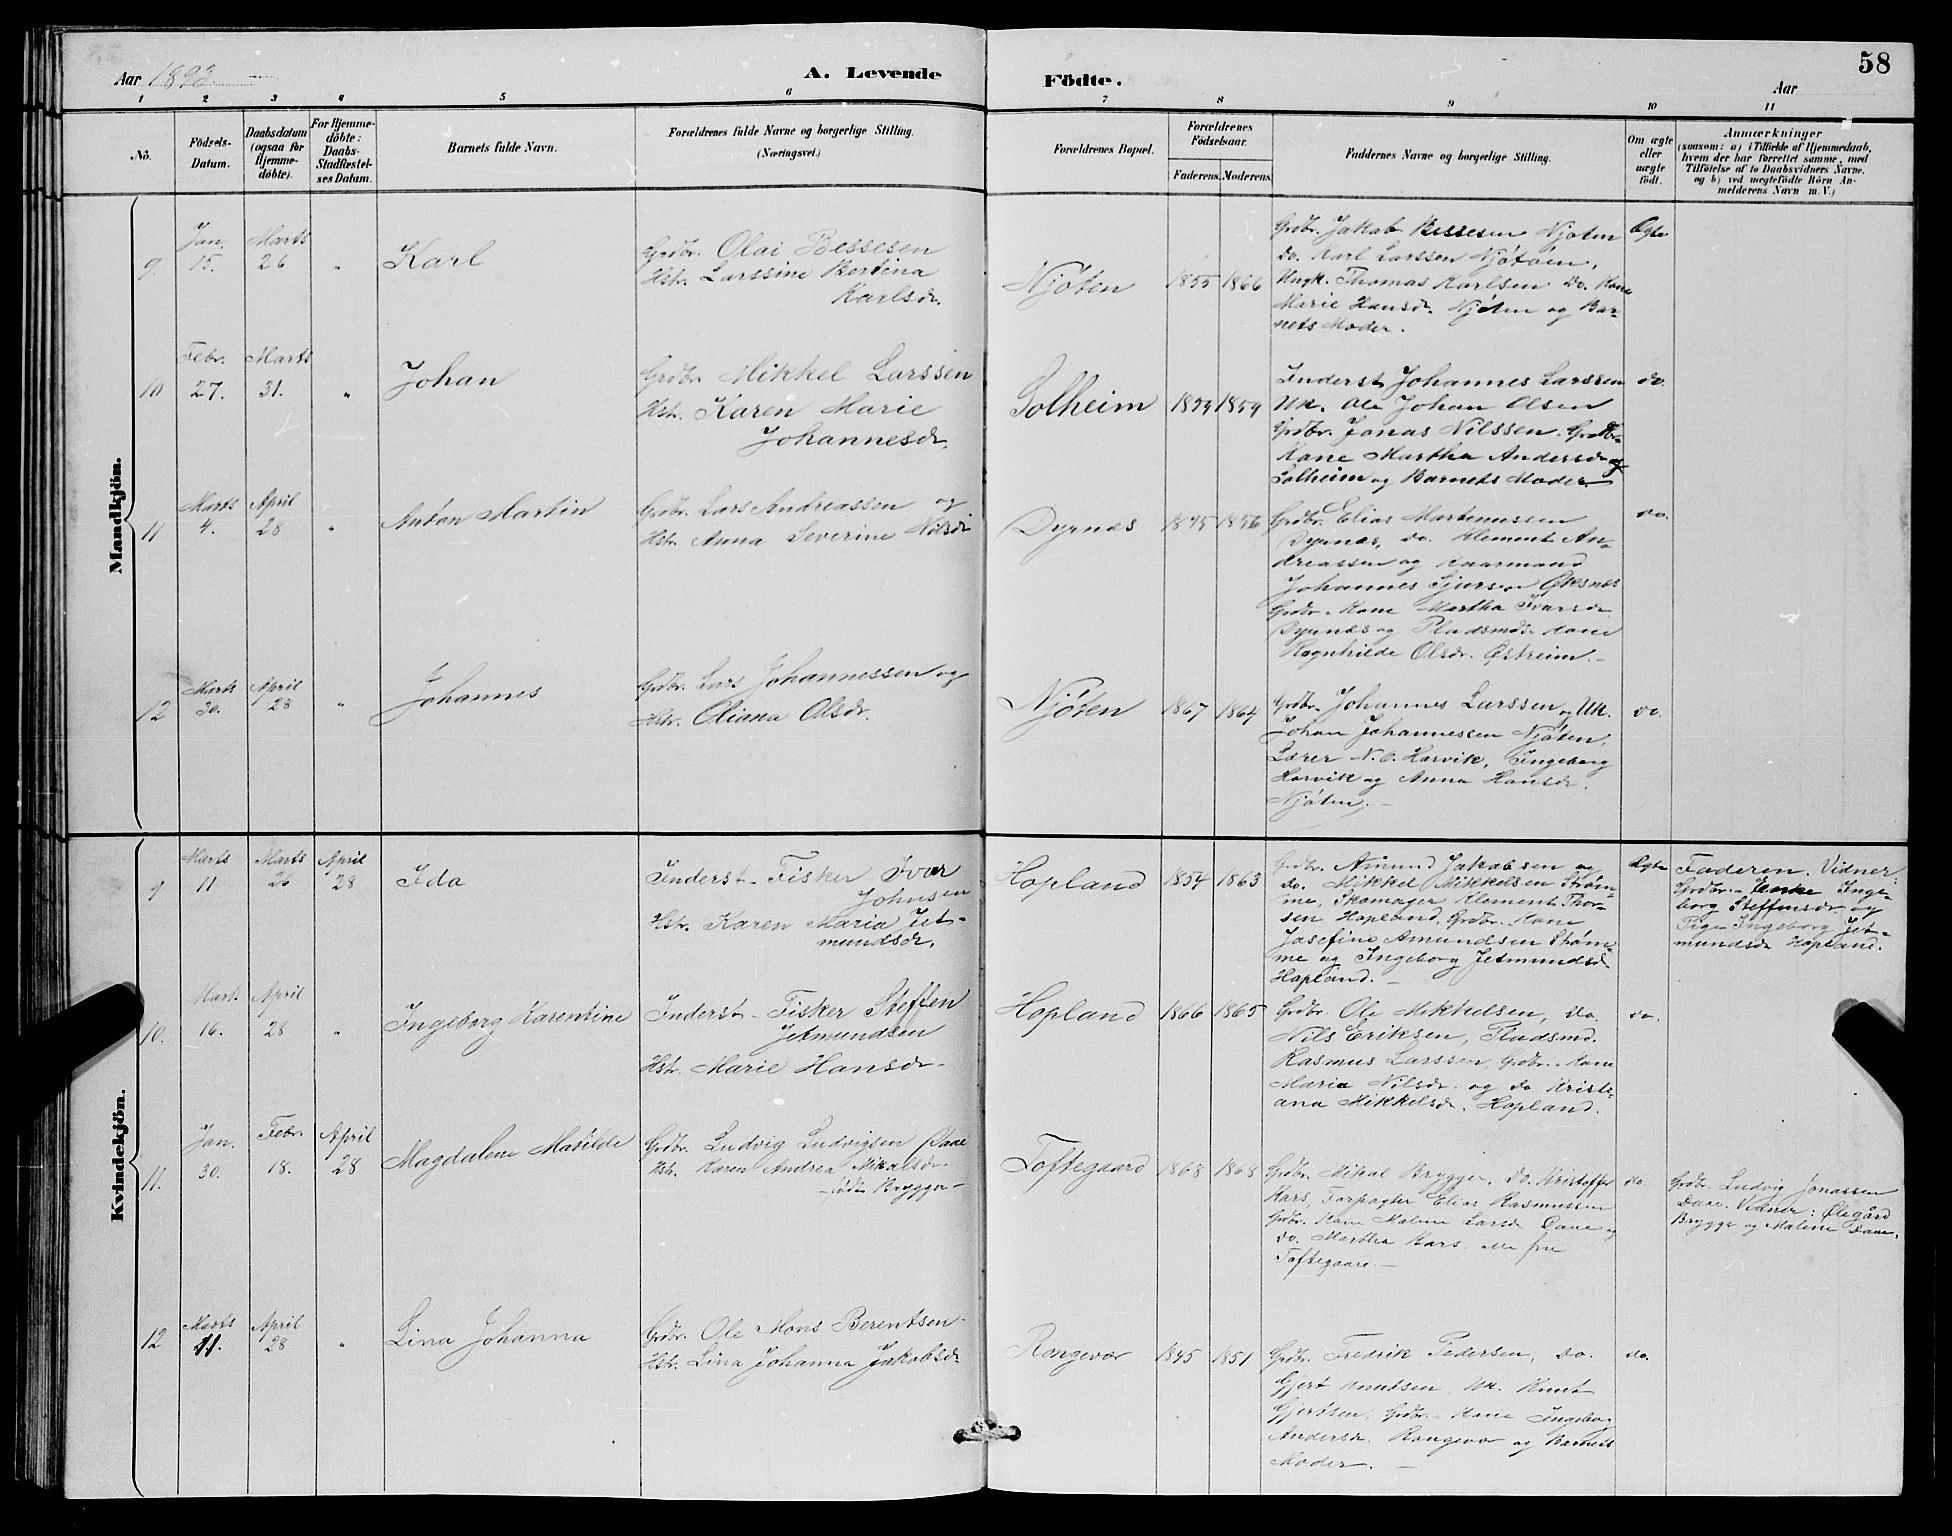 58
Aar 1893
A. Levende
Födte.
Aar
1 2 3 4 5 6 7 8 9 10 11
No.
Födsels-Datum.
Daabsdatum (ogsaa for Hjemme-döbte).
For Hjemme-döbte: Daabs-Stadfæstel-ses Datum.
Barnets fulde Navn.
Forældrenes fulde Navne og borgerlige Stilling. (Næringsvei.)
Forældrenes Bopæl.
Forældrenes Födselsaar.
Faderens. Moderens.
Faddernes Navne og borgerlige Stilling.
Om ægte eller uægte födt.
Anmærkninger
(saasom: a) i Tilfælde af Hjemmedaab,
hvem der har forrettet samme, med
Tilföielse af to Daabsvidners Navne.
og b) ved uægtefödte Börn An-
melderens Navn m. V.)
Mandkjön.
9. Jan. 15. Marts 26 " Karl
Grdbr. Olai Bessesen
Hstr. Larssine Bertina
Karlsdr.
Njøten 1855 1866
Grdbr. Jakob Bessesen Njøten
do. Karl Larssen Njøten,
Ungk. Thomas Karlsen do. Kone
Marie Hansdr. Njøten og Bar-
nets Moder.
Ægte
10 Febr. 27. Marts 31. " Johan
Grdbr. Mikkel Larssen
Hstr. Karen Marie
Johannesdr.
Solheim 1859 1859
Inderst Johannes Larssen
Uk. Ole Johan Olsen
Grdbr. Jonas Nilssen. Grdbr.
Kone Martha Andersdr
Solheim og Barnets Moder.
do.
11 Marts 4. April 28 " Anton Martin
Grdbr. Lars Andreassen og
Hstr. Anna Severine Nilsdr
Dyrnes 1845 1856
Grdbr. Elias Martinussen
Dyrnes, do. Klement An-
dreassen og Kaarmand
Johannes Sjursen Øksnes
Grdbr. Kone Martha Ivarsdr
Dyrnes og Pladsmds. Kone
Ragnhilde Olsdr. Østreim.-
do.
12 Marts 30. April 28 " Johannes
Grdbr. Lars Johannessen og
Hstr. Oliana Olsdr.
Njøten 1867 1864
Grdbr. Johannes Larssen og Uk.
Johan Johannessen Njøten,
Lærer N. O. Horvik, Ingeborg
Horvik og Anna Hansdr.
Njøten.-
do.
Kvindekjön.
9 Marts 11 Marts 26 April 28 Ida
Inderst - Fisker Ivar
Johnsen
Hstr. Karen Maria Jet-
mundsdr.
Hopland 1854 1863
Grdbr. Amund Jakobsen og
do. Mikkel Mikkelsen Strøm-
me, Skomager Klement Thor-
sen Hopland, Grdbr. Kone
Josefine Amundsen Strøm-
me og Ingeborg Jetmundsd.
Hopland.-
Ægte
Faderen. Vidner:
Grdbr. Enke Inge-
borg Steffensdr og
Pige Ingeborg Jet-
mundsdr Hopland.
10. Mart. 16. April 28 " Ingeborg Karentine
Inderst - Fisker Steffen
Jetmundsen
Hstr. Marie Hansdr.
Hopland 1866 1865
Grdbr. Ole Mikkelsen, do.
Nils Eriksen, Pladsmd.
Rasmus Larssen, Grdbr. Kone
Maria Nilsdr. og do Kristi-
ana Mikkelsdr. Hopland.
do.
11. Jan. 30. Febr. 18. April 28 Magdalene Matilde
Grdbr. Ludvig Ludvigsen Daae
Hstr. Karen Andrea Mikalsdr.
født Brygge-
Toftegaard 1868 1868
Grdbr. Mikal Brygge, do. Kristoffer
Kars, Forpagter Elias Rasmussen
Grdbr. Kone Malene Larsdr Daae og
do. Martha Kars. alle fra
Toftegaard.-
do.
Grdbr. Ludvig Jonassen
Daae. Vidner: Ølegård
Brygge og Malene Daae.
12 Marts 11. April 28 " Lina Johanna
Grdbr. Ole Mons Berentsen
Hstr. Lina Johanna Jakobsdr
Rongevær 1845 1851
Grdbr. Fredrik Pedersen, do.
Gjert Knutsen, Uk. Knut
Gjertsen, Grdbr. Kone Ingeborg
Andersdr. Rongevær og Barnets
Moder.-
do.